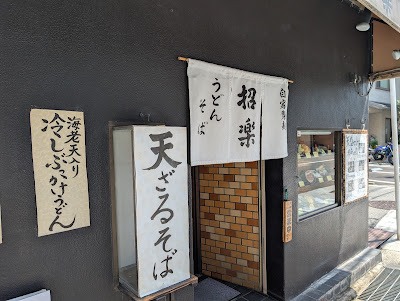 海老天入り
冷しぶっかけうどん
天ざるそば
招楽
うどん
そば